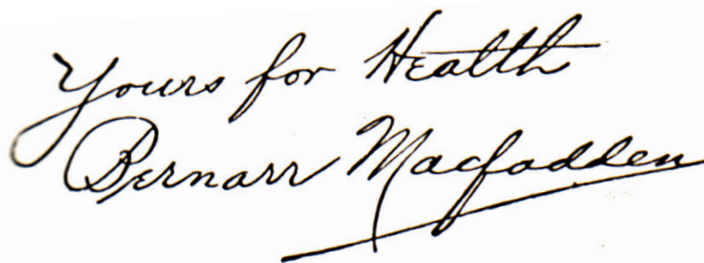 Yours for Health
Bernarr Macfadden